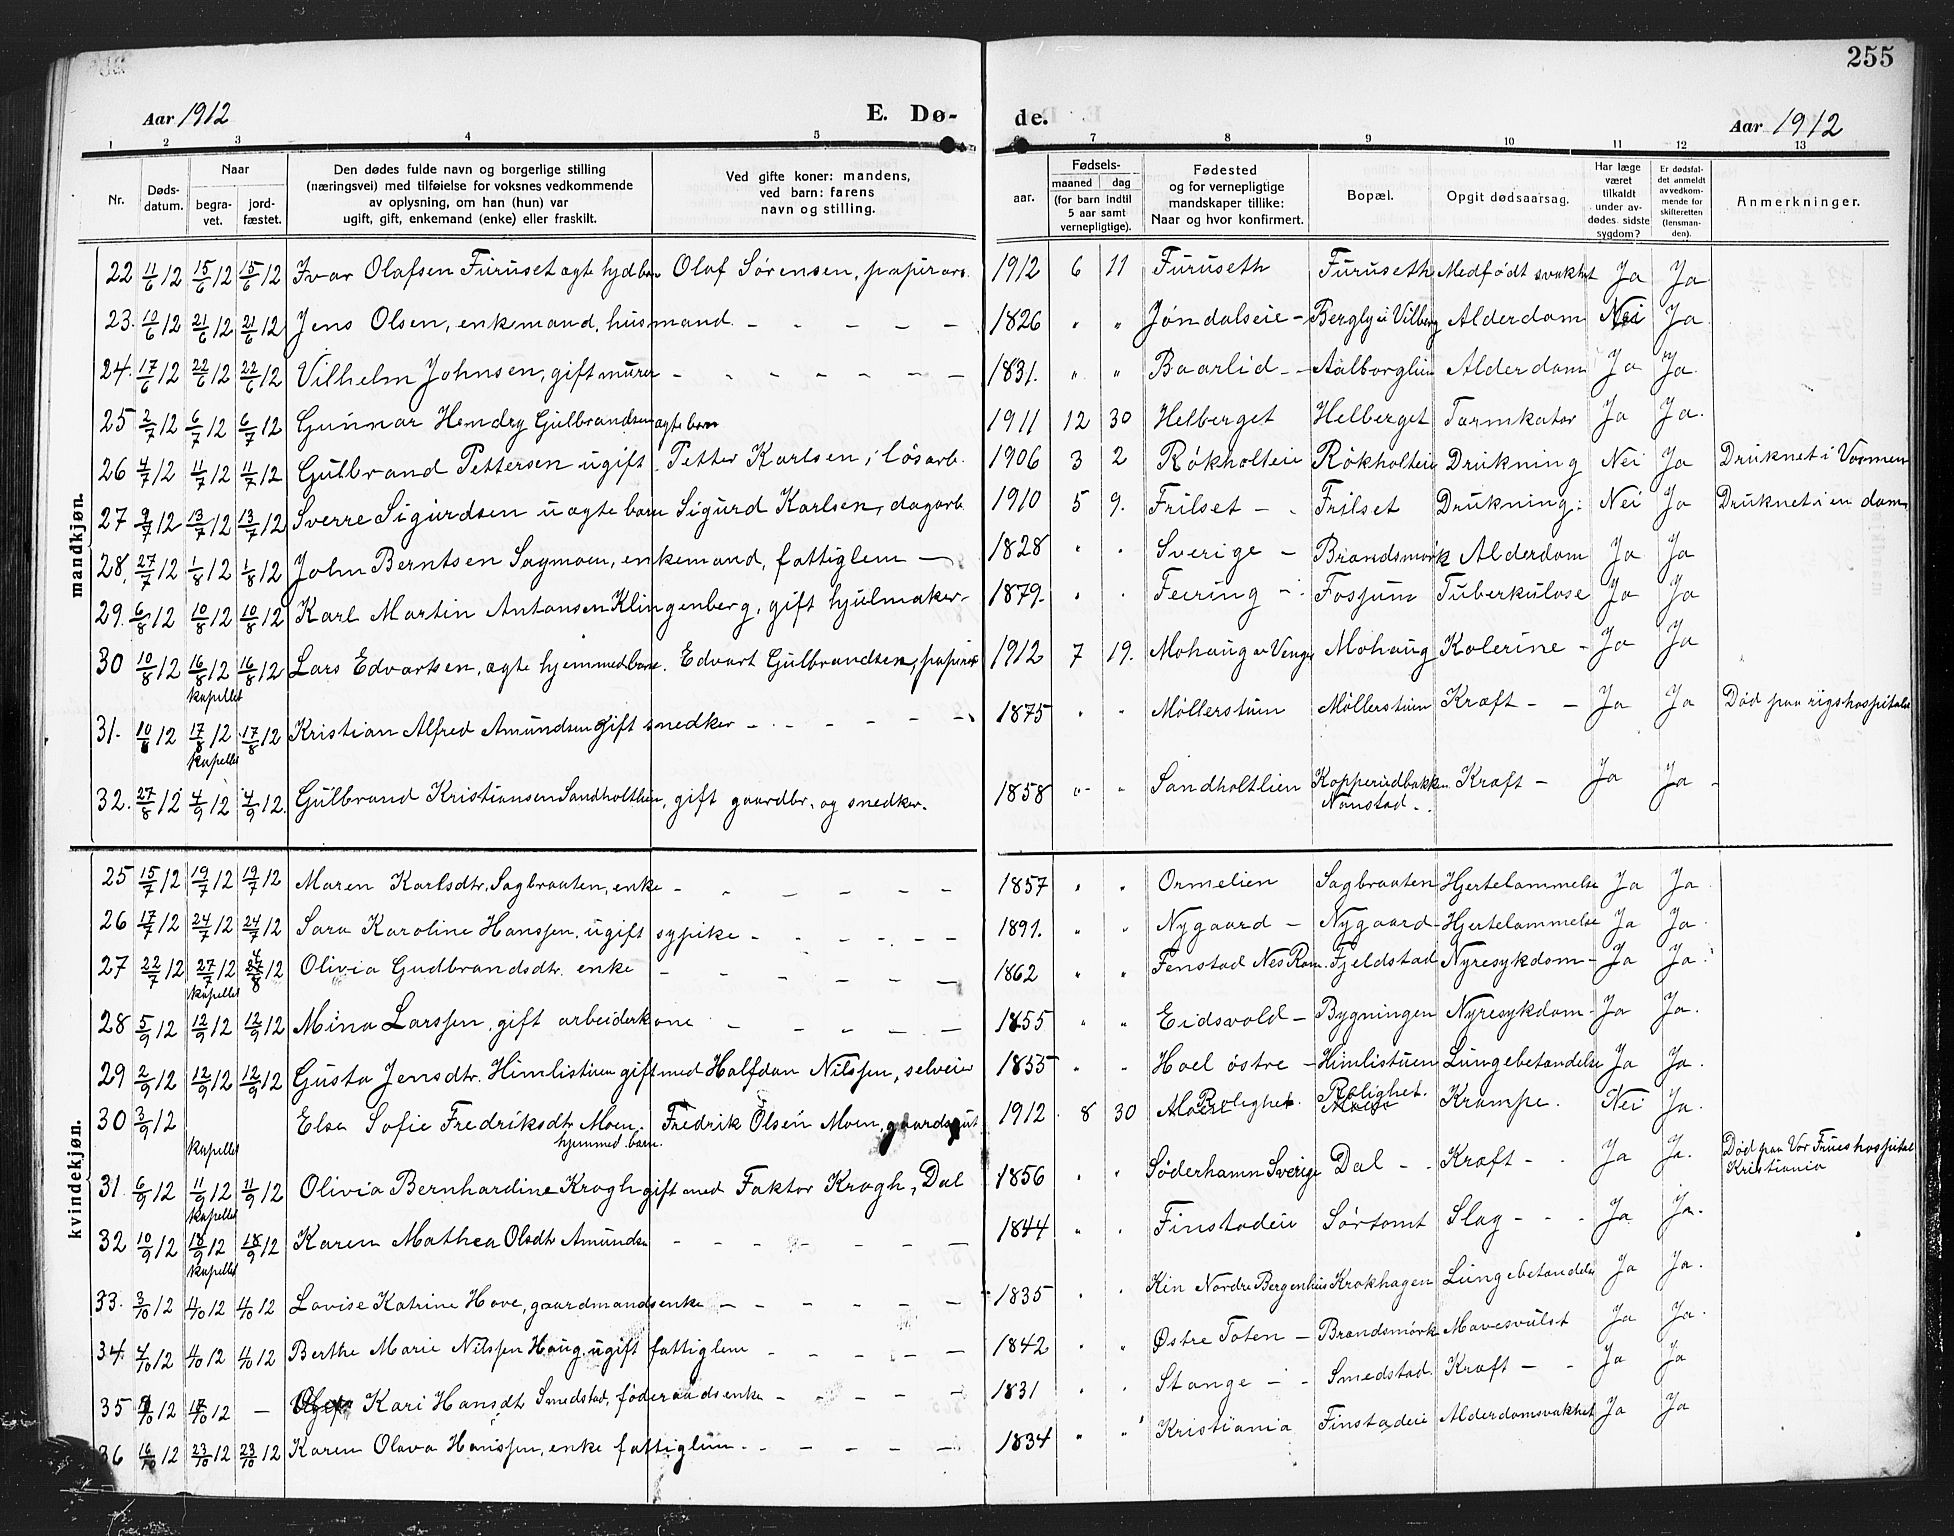 255
Aar 1912 E. Dø- de. Aar 1912
1 2 3 4 5 6 7 8 9 10 11 12 13
Nr. Døds-datum. Naar begra-vet. jord-fæstet. Den dødes fulde navn og borgerlige stilling (næringsvei) med tilføielse for voksnes vedkommende av oplysning, om han (hun) var ugift, gift, enkemand (enke) eller fraskilt. Ved gifte koner: mandens, ved barn: farens navn og stilling. aar. Fødsels- maaned dag (for barn indtil 5 aar samt vernepligtige). Fødested og for vernepligtige mandskaper tillike: Naar og hvor konfirmert. Bopæl. Opgit dødsaarsag. Har læge været tilkaldt under av-dødes sidste sygdom? Er dødsfal-det anmeldt av vedkom-mende for skifteretten (lensman-den). Anmerkninger.
mandkjøn.
22 11/6 12 15/6 12 15/6 12 Ivar Olafsen Furuset ægte hjdbarn Olaf Sörensen, papirarb. 1912 6 11 Furuseth Furuseth Medfødt svakhet Ja Ja
23. 12/6 12 21/6 12 21/6 12 Jens Olsen, enkemand, husmand. - - - - 1826 " " Jöndalseie - Bergly i Vilberg Alderdom Nei Ja
24. 17/6 12 22/6 12 22/6 12 Vilhelm Johnsen, gift murer - - - - - - 1831. " " Baarlid - - Aalborglien Alderdom Ja Ja.
25 2/7 12 6/7 12 6/7 12 Gunnar Hendry Gulbrandsen ægte barn 1911 12 30 Helberget Helberget Tarmkatar Ja Ja.
26 4/7 12 11/7 12 11/7 12 Gulbrand Pettersen ugift. Petter Karlsen, lösarb. 1906 3 2 Rökholteie Rökholteie Drukning Nei Ja Druknet i Vormen
27 9/7 12 13/7 12 13/7 12 Sverre Sigurdsen uægte barn Sigurd Karlsen, dagarb. 1910 5 9. Frilset - - Frilset Drukning: Nei Ja Druknet i en dam
28. 27/7 12 1/8 12 1/8 12 John Berntsen Sagmoen, enkemand, fattiglem - 1828 " " Sverige - Brandsmörk Alderdom Ja Ja
29. 6/8 12 10/8 12 10/8 12 Karl Martin Antonsen Klingenberg, gift hjulmaker - 1879. " " Feiring - - Fosjum Tuberkulose Ja Ja
30 10/8 12 16/8 12 16/8 12 Lars Edvartsen, ægte hjemmedbarn. Edvart Gulbrandsen, papirar 1912 7 19. Mohaug av Venger Mohaug Kolerine - Ja Ja
kapellet
31. 10/8 12 17/8 12 17/8 12 Kristian Alfred Amundsen gift snedker - - - - - - 1875 " " Möllerstuen Möllerstuen Kræft - - Ja Ja Död paa rigshospitalet
kapellet
32. 27/8 12 4/9 12 4/9 12. Gulbrand Kristiansen Sandholtlien, gift gaardbr. og snedker. 1858 " " Sandholtlien Kopperudbakken Nanstad - Kræft - Ja Ja -
kvindekjøn.
25 15/7 12 19/7 12 19/7 12 Maren Karlsdtr. Sagbraaten, enke - - - - - 1857 " " Ormelien Sagbraaten Hjertelammelse Ja Ja.
26 17/7 12 24/7 12 24/7 12 Sara Karoline Hanssen, ugift sypike - - - - - 1891. " " Nygaard - Nygaard - Hjertelammelse Ja Ja.
27 22/7 12 27/7 12 4/8 12 Olivia Gudbrandsdtr. enke - - - - - 1862 " " Fenstad Nes Rom. Fjeldstad Nyresykdom - Ja Ja.
kapellet
28 5/9 12 12/9 12 12/9 12 Mina Larssen, gift arbeiderkone - - - - - 1855 " " Eidsvold - Bygningen Nyresykdom - Ja Ja.
29 2/9 12 12/9 12 12/9 12 Gusta Jensdtr. Himlistuen gift med Halfdan Nilssen, selveier 1855 " " Hoel östre - Himlistuen Lungebetændelse Ja Ja.
30 3/9 12 Elsa Sofie Fredriksdtr Moen. hjemmed. barn. Fredrik Olsen Moen, gaardsgut 1912 8 30 Rolighet. Rolighet. Krampe. Nei Ja.
kapellet
31. 6/9 12 11/9 12 11/9 12 Olivia Bernhardine Krogh gift med Faktor Krogh, Dal 1856 " " Söderhamn Sverige Dal - - Kræft - - Ja Ja. Död paa Vor Frues hospital Kristiania
kapellet
32 10/9 12 18/9 12 18/9 12 Karen Mathea Olsdtr Amundsen - - - - - - 1844 " " Finstadeie Sörtomt Slag - - - Ja Ja.
kapellet
33. 3/10 12 4/10 12 4/10 12 Lovise Katrine Hove, gaardmandsenke - - - - - 1835 " " Kin Nordre Bergenhus Krokhagen Lungebetændelse Ja Ja.
34. 4/10 12 4/10 12 4/10 12 Berthe Marie Nilssen Haug. ugift fattiglem - - - - - 1842 " " Østre Toten - Brandsmörk Mavesvulst Ja Ja.
35 /10 12 /10 12 - Kari Hansdtr Smedstad, föderaadsenke - - - - - 1831 " " Stange - - Smedstad Kræft - - Ja Ja
36 16/10 12 23/10 12 23/10 12 Karen Olava Hanssen, enke fattiglem. - - - - - 1834 " " Kristiania Finstadeie Alderdomsvakhet Ja Ja